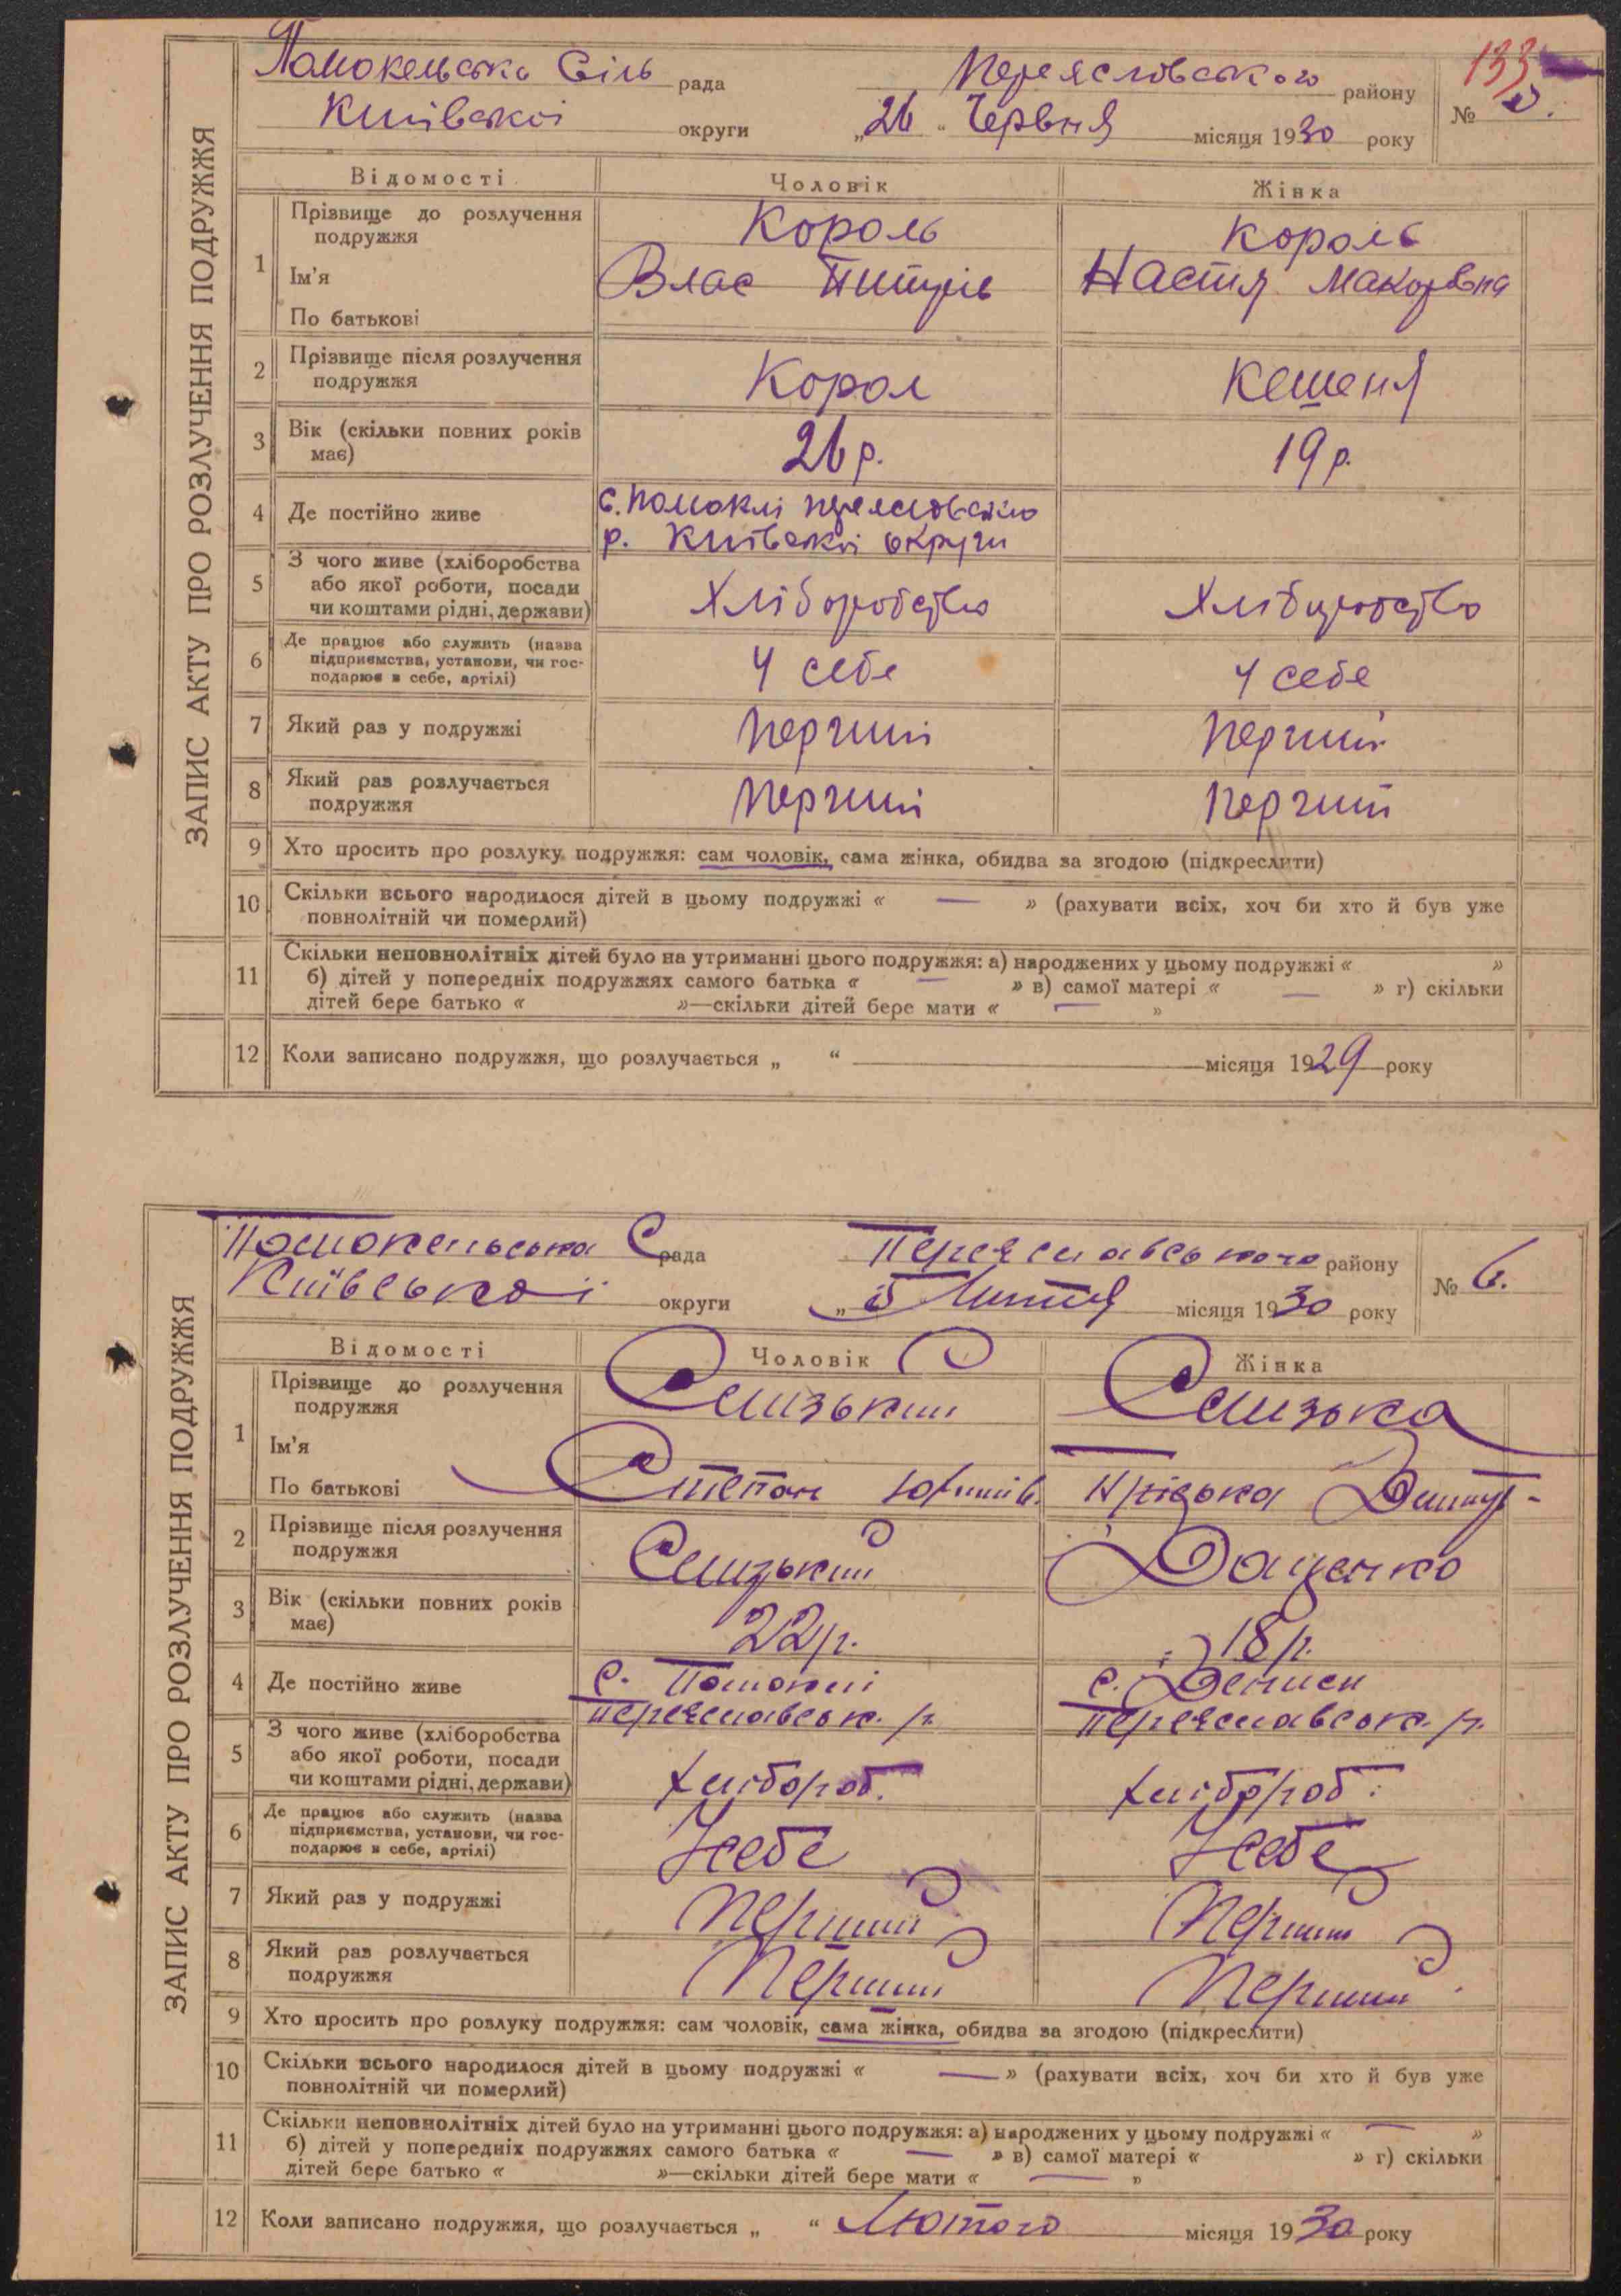 ЗАПИС АКТУ ПРО РОЗЛУЧЕННЯ ПОДРУЖЖЯ
Помокельська Сіль рада Переяславського району
133
Київської округи „26“ Червня місяця 1930 року №
Відомості Чоловік Жінка
1 Прізвище до розлучення подружжя Король Король
Ім'я Влас Настя Макарівна
По батькові
2 Прізвище після розлучення подружжя Корол Кешеня
3 Вік (скільки повних років має) 26 р. 19 р.
4 Де постійно живе с. Помоклі Переяславсько
р. Київської округи
5 З чого живе (хліборобства або якої роботи, посади чи коштами рідні, держави) Хліборобство Хліборобство
6 Де працює або служить (назва підприємства, установи, чи господарює в себе, артілі) У себе У себе
7 Який раз у подружжі Перший Перший
8 Який раз розлучається подружжя Перший Перший
9 Хто просить про розлуку подружжя: сам чоловік, сама жінка, обидва за згодою (підкреслити)
10 Скільки всього народилося дітей в цьому подружжі « — » (рахувати всіх, хоч би хто й був уже
повнолітній чи померлий)
11 Скільки неповнолітніх дітей було на утриманні цього подружжя: а) народжених у цьому подружжі « »
б) дітей у попередніх подружжях самого батька « — » в) самої матері « — » г) скільки
дітей бере батько « »—скільки дітей бере мати « — »
12 Коли записано подружжя, що розлучається „ “ місяця 1929 року
ЗАПИС АКТУ ПРО РОЗЛУЧЕННЯ ПОДРУЖЖЯ
Помокельська С рада Переяславського району
Київської округи „5 Липня місяця 1930 року № 6.
Відомості Чоловік Жінка
1 Прізвище до розлучення подружжя Слизький Слизька
Ім'я
По батькові Степан Юхимів. Пріська Дмитр-
2 Прізвище після розлучення подружжя Слизький Даценко
3 Вік (скільки повних років має) 22 р. 18 р.
4 Де постійно живе с. Помоклі с. Дениси
Переяславськ. р. Переяславськ. р.
5 З чого живе (хліборобства або якої роботи, посади чи коштами рідні, держави) Хлібороб. Хлібороб.
6 Де працює або служить (назва підприємства, установи, чи господарює в себе, артілі) У себе У себе
7 Який раз у подружжі Перший Перший
8 Який раз розлучається подружжя Перший Перший
9 Хто просить про розлуку подружжя: сам чоловік, сама жінка, обидва за згодою (підкреслити)
10 Скільки всього народилося дітей в цьому подружжі « — » (рахувати всіх, хоч би хто й був уже
повнолітній чи померлий)
11 Скільки неповнолітніх дітей було на утриманні цього подружжя: а) народжених у цьому подружжі « — »
б) дітей у попередніх подружжях самого батька « — » в) самої матері « » г) скільки
дітей бере батько « »—скільки дітей бере мати « — »
12 Коли записано подружжя, що розлучається „ “ Лютого місяця 1930 року